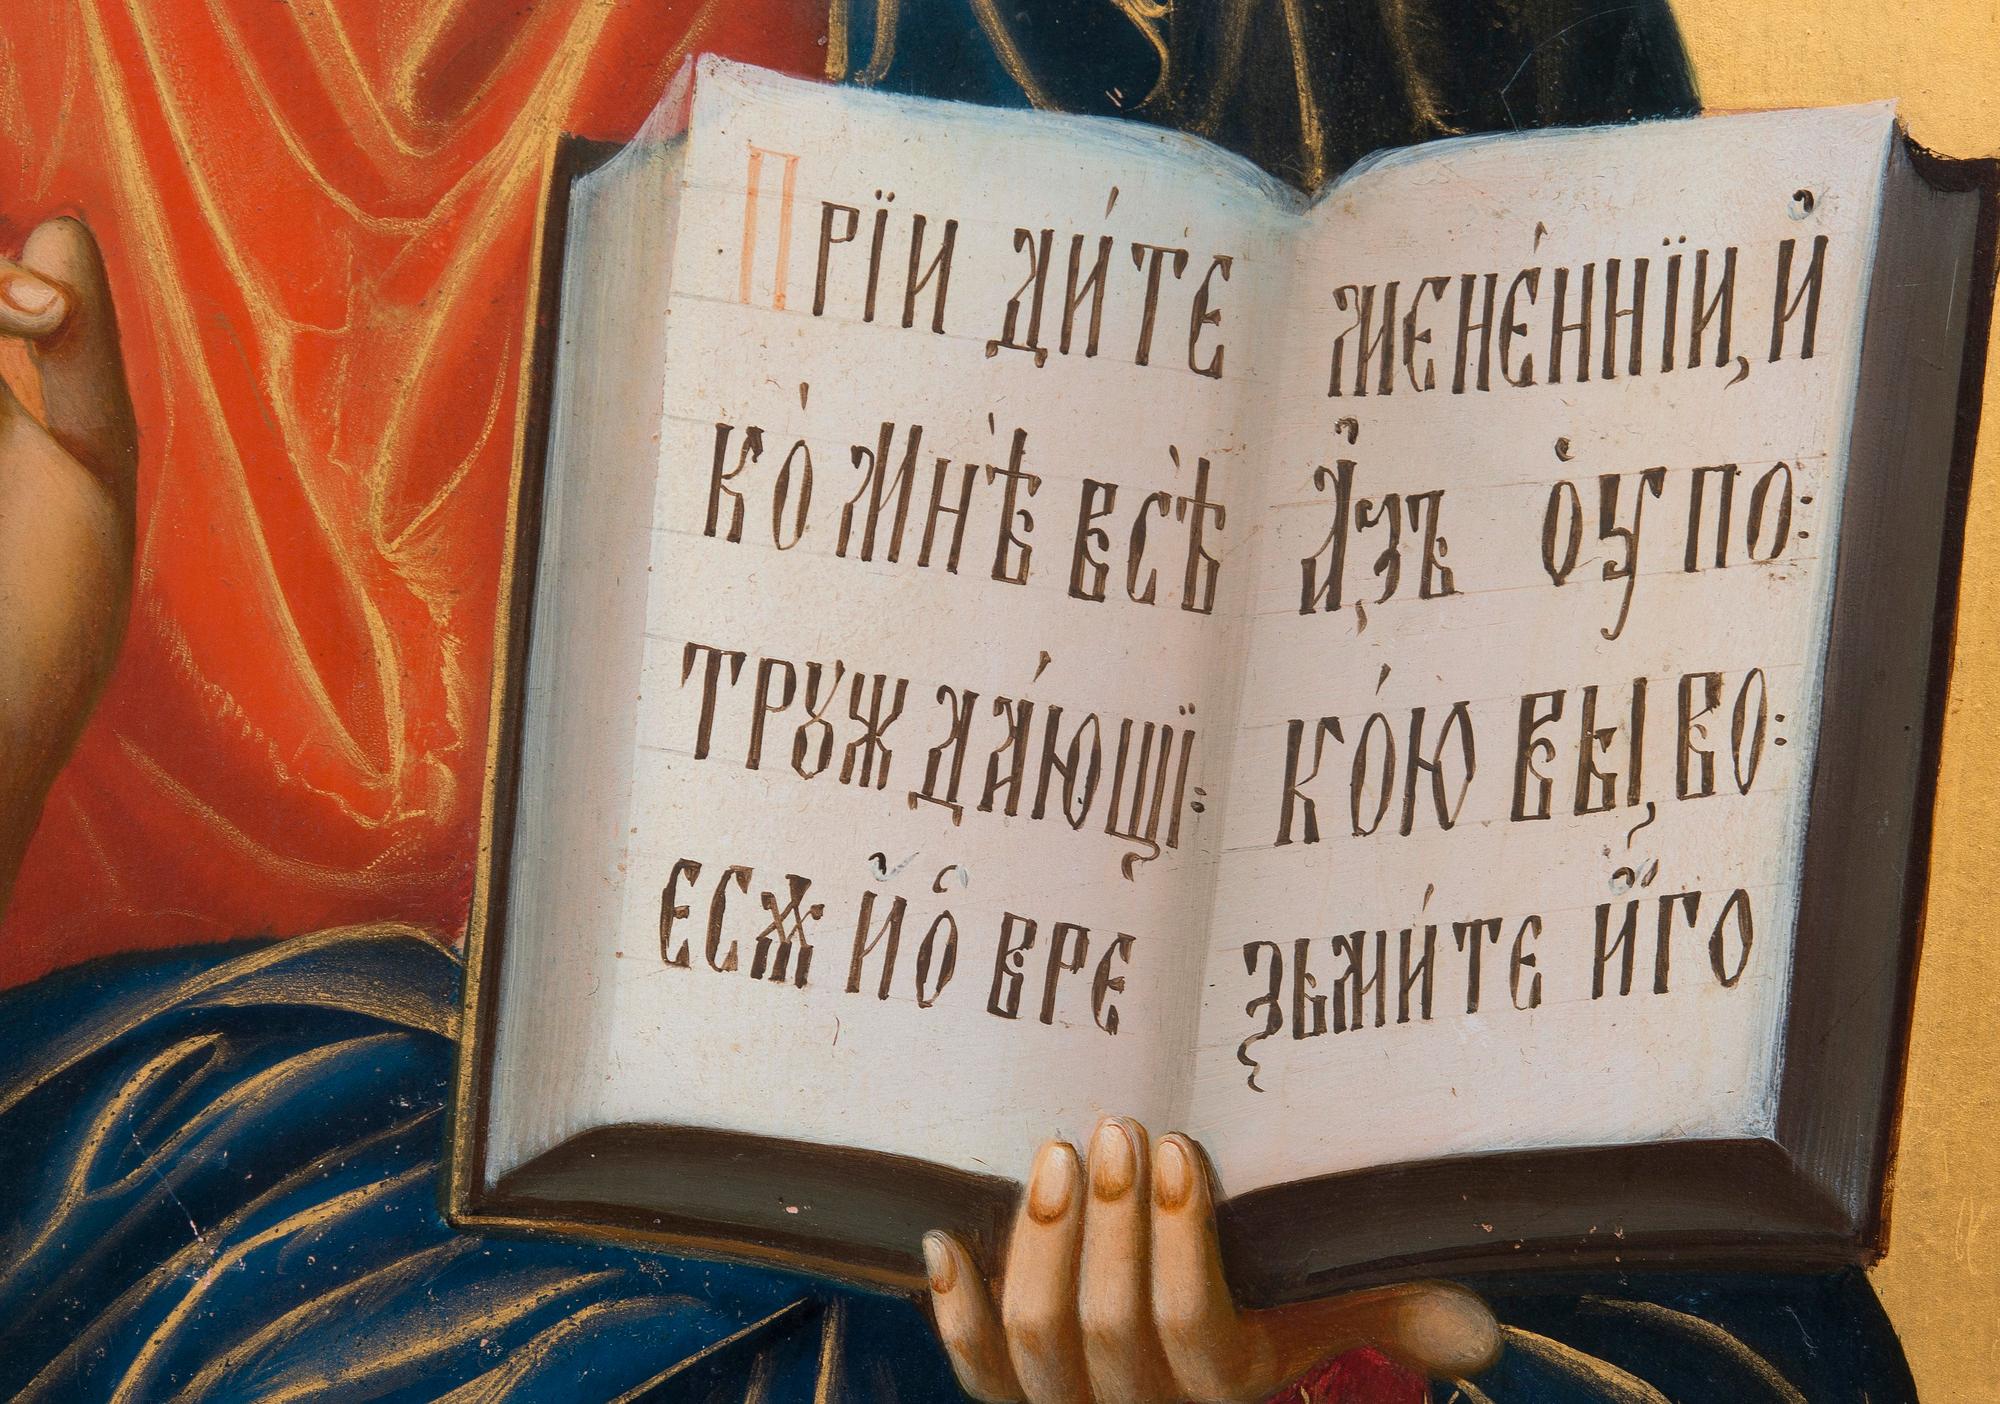 Прїи ди́те
ко́ мнѣ̀ всѣ̀
трꙋжда́ющї:
есѧ̀ и҆ ѻ҆бре
мене́ннїи, и҆
а҆́зъ оу҆по:
ко́ю вы̀, во:
зьми́те и҆́го